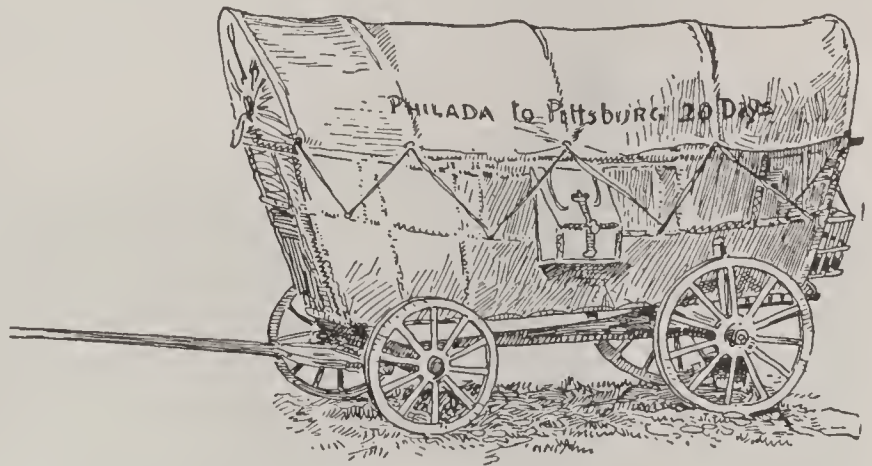 PHILADA to Pittsburg 20 Days